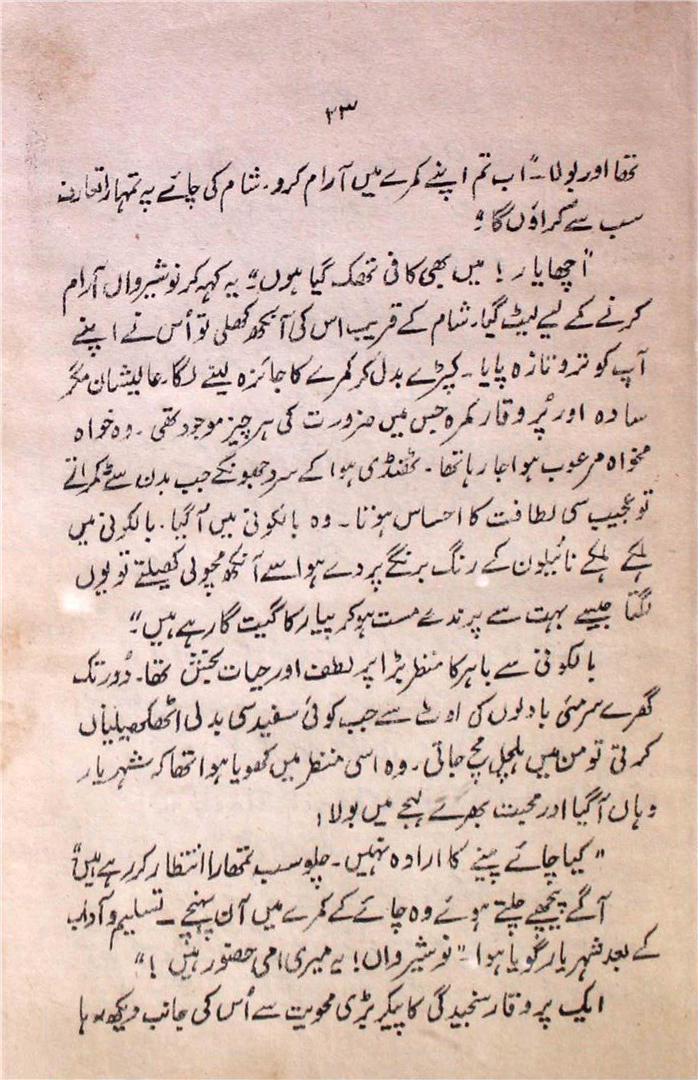 ۲۳
تھا اور بولا۔ "اب تم اپنے کمرے میں آرام کرو۔ شام کی چائے پہ تمہارا تعارف
سب سے کراؤں گا"
"اچھا یار! میں بھی کافی تھک گیا ہوں" یہ کہہ کر نوشیرواں آرام
کرنے کے لیے لیٹ گیا۔ شام کے قریب اس کی آنکھ کھلی تو اُس نے اپنے
آپ کو تروتازہ پایا۔ کپڑے بدل کر کمرے کا جائزہ لینے لگا۔ عالیشان مگر
سادہ اور پُر وقار کمرہ جس میں ضرورت کی ہر چیز موجود تھی۔ وہ خواہ
مخواہ مرعوب ہوا جا رہا تھا۔ ٹھنڈی ہوا کے سرد جھونکے جب بدن سے ٹکراتے
تو عجیب سی لطافت کا احساس ہوتا۔ وہ بالکونی میں آ گیا۔ بالکونی میں
ہلکے ہلکے نائیلون کے رنگ برنگے پردے ہوا سے آنکھ مچولی کھیلتے تو یوں
لگتا جیسے بہت سے پرندے مست ہو کر پیار کا گیت گا رہے ہیں"
بالکونی سے باہر کا منظر بڑا پر لطف اور حیات بخش تھا۔ دُور تک
گہرے سرمئی بادلوں کی اوٹ سے جب کوئی سفید سی بدلی اٹھکھیلیاں
کرتی تو من میں ہلچل مچ جاتی۔ وہ اسی منظر میں کھویا ہوا تھا کہ شہریار
وہاں آ گیا اور محبت بھرے لہجے میں بولا!
"کیا چائے پینے کا ارادہ نہیں۔ چلو سب تمھارا انتظار کر رہے ہیں"
آگے پیچھے چلتے ہوئے وہ چائے کے کمرے میں آن پہنچے۔ تسلیم و آداب
کے بعد شہریار گویا ہوا۔ "نوشیرواں! یہ میری امی حضور ہیں!"
ایک پر وقار سنجیدگی کا پیکر بڑی محویت سے اُس کی جانب دیکھ رہا